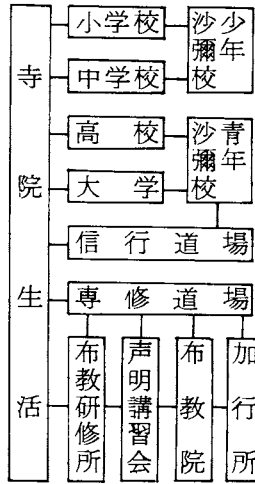 寺院生活
小学校
中学校
少年
沙彌校
高校
大学
青年
沙彌校
信行道場
専修道場
布教研修所
声明講習会
布教院
加行所